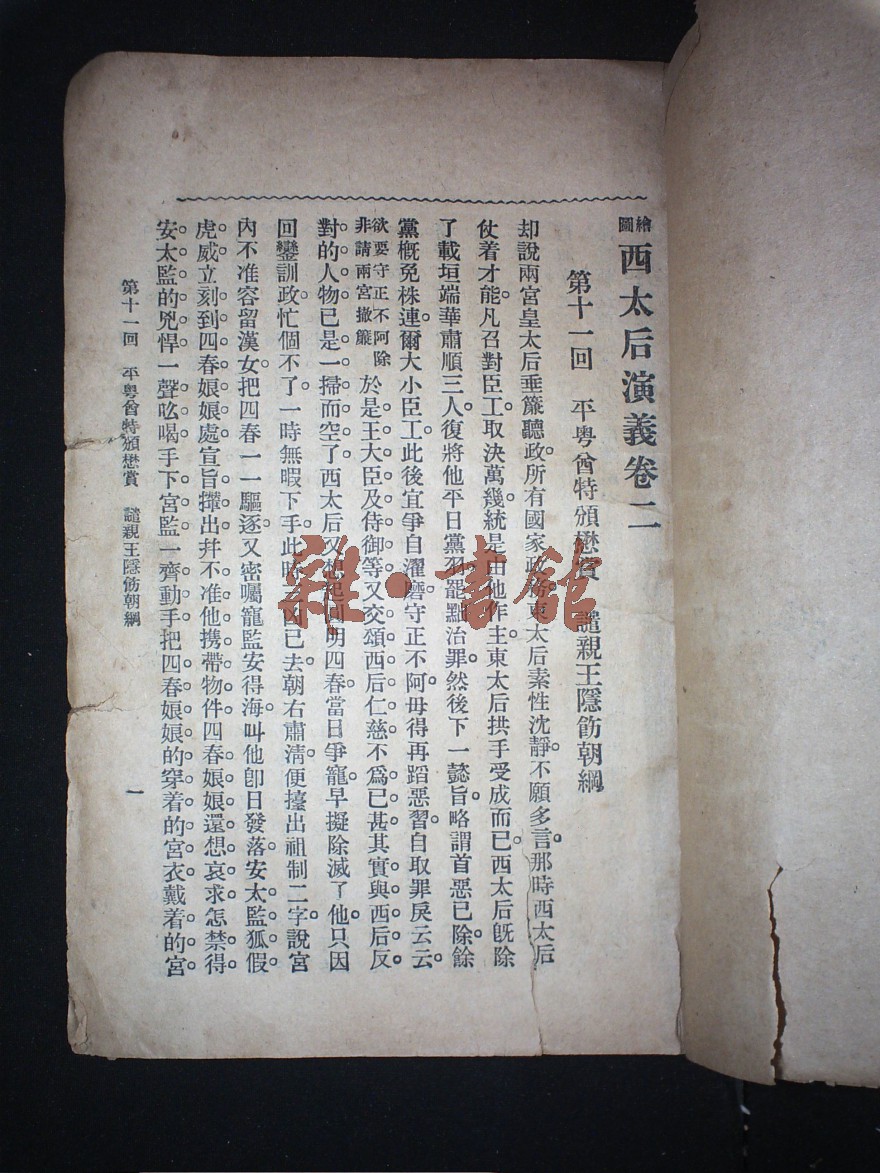 繪圖西太后演義卷二
第十一回　平粤酋特頒懋賞　譴親王隱飭朝綱
却說兩宮皇太后垂簾聽政所有國家政務東太后素性沈靜不願多言。那時西太后
仗着才能。凡召對臣工取決萬幾統是由他作主。東太后拱手受成而已。西太后旣除
了載垣端華肅順三人。復將他平日黨羽罷黜治罪。然後下一懿旨。略謂首惡已除餘
黨概免株連。爾大小臣工此後宜爭自濯磨。守正不阿。毋得再蹈惡習。自取罪戾云云。
欲要守正不阿除非請兩宮撤簾於是王大臣及侍御等又交頌西后仁慈不爲已甚其實與西后反
對的人物已是一掃而空了西太后又想起圓明四春當日爭寵。早擬除滅了他。只因
回鑾訓政。忙個不了。一時無暇下手。此時三凶已去。朝右肅清。便擡出祖制二字。說宮
內不准容留漢女。把四春一一驅逐。又密囑寵監安得海。叫他卽日發落。安太監狐假
虎威立刻到四春娘娘處宣旨攆出幷不准他携帶物件四春娘娘還想哀求怎禁得
安太監的兇悍一聲吆喝手下宮監一齊動手把四春娘娘的穿着的宮衣戴着的宮
第十一回　平粤酋特頒懋賞　譴親王隱飭朝綱
一
雜·書館